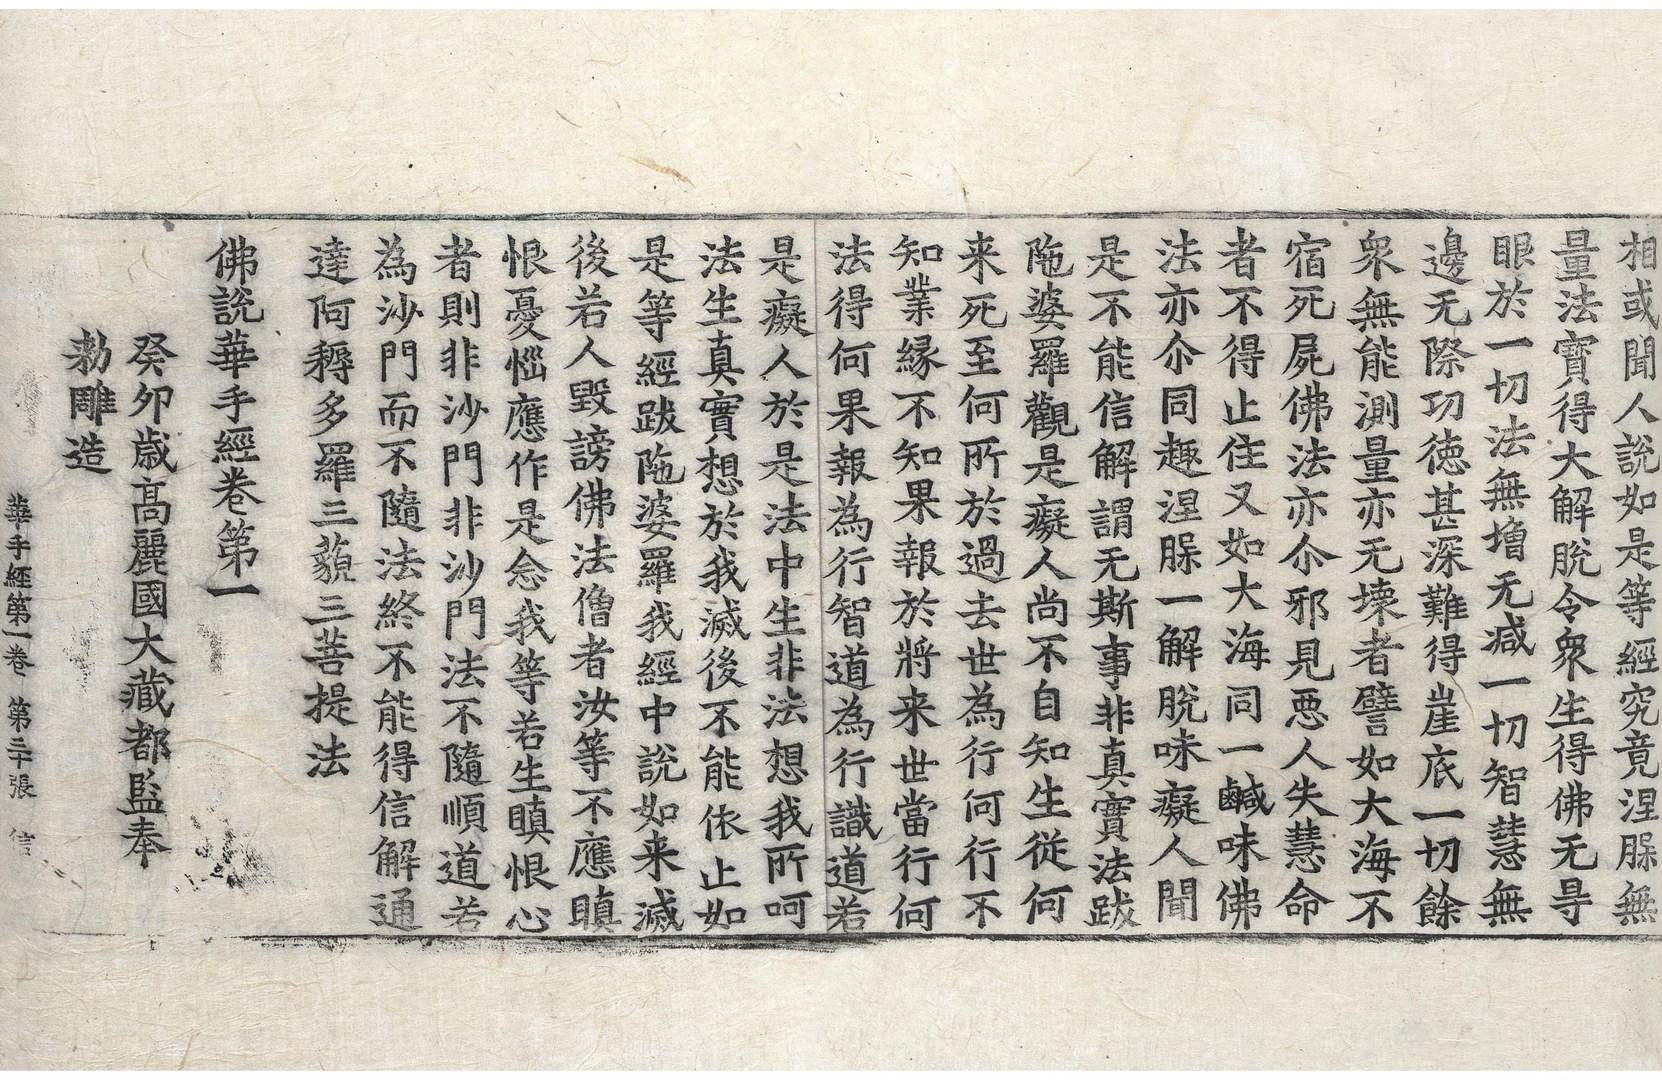 相或聞人說如是等經究竟涅𦙾無
量法寶得大解脫令衆生得佛无㝵
眼於一切法無增无减一切智慧無
邊无際功德甚深難得崖底一切餘
衆無能測量亦无壞者譬如大海不
宿死屍佛法亦尒邪見惡人失慧命
者不得止住又如大海同一鹹味佛
法亦尒同趣涅𦙾一解脫味癡人聞
是不能信解謂无斯事非真實法跋
陁婆羅觀是癡人尚不自知生從何
来死至何所於過去世為行何行不
知業緣不知果報於將来世當行何
法得何果報為行智道為行識道若
是癡人於是法中生非法想我所呵
法生真實想於我滅後不能依止如
是等經跋陁婆羅我經中說如来滅
後若人毀謗佛法僧者汝等不應瞋
恨憂惱應作是念我等若生瞋恨心
者則非沙門非沙門法不隨順道若
為沙門而不隨法終不能得信解通
達阿耨多羅三藐三菩提法
佛說華手經卷第一
癸卯歲高麗國大藏都監奉
勑雕造
華手經第一卷 第三十張 信